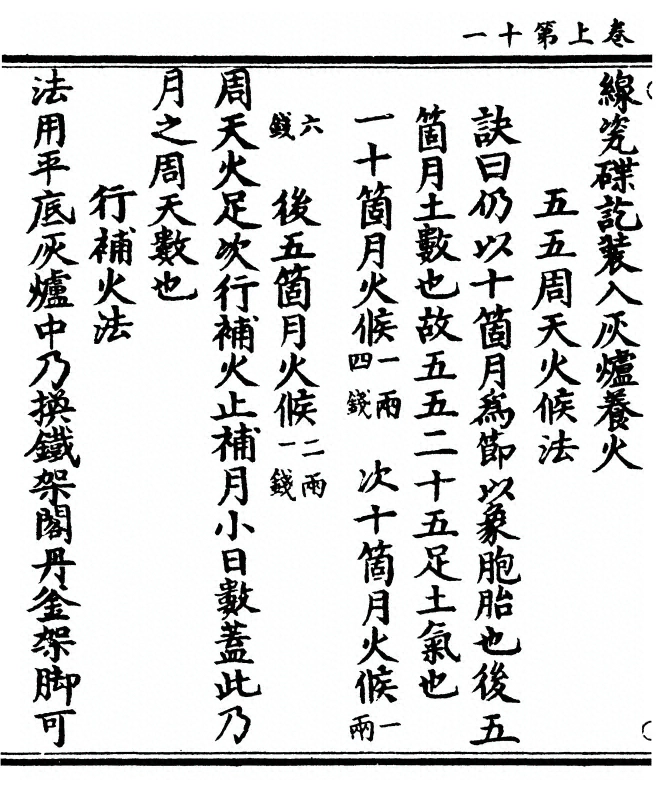 卷上第十一
線瓷碟訖裝入灰爐養火
五五周天火候法
訣曰仍以十箇月為節以象胞胎也後五
箇月土數也故五五二十五足土氣也
一十箇月火候一兩四錢 次十箇月火候一兩
六錢 後五箇月火候二兩一錢
周天火足次行補火止補月小日數蓋此乃
月之周天數也
行補火法
法用平底灰爐中乃換鐵架閣丹釜架脚可